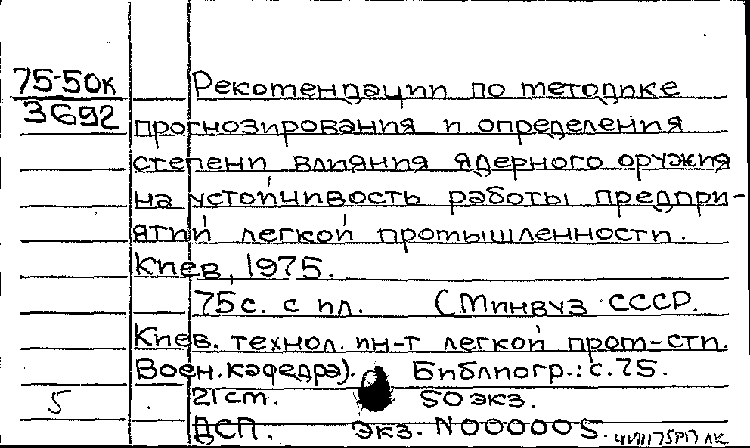 75-50к
3692
Рекомендации по методике
прогнозирования и определения
степени влияния ядерного оружия
на устойчивость работы предпри-
ятий легкой промышленности.
Киев, 1975.
75 с. с ил. (Минвуз СССР.
Киев. технол. ин-т легкой пром-сти.
Воен. кафедра). Библиогр.: с. 75.
5 21 см. 50 экз.
ДСП. экз. N000005.